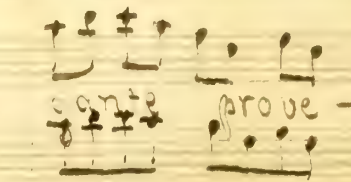 cante prove-